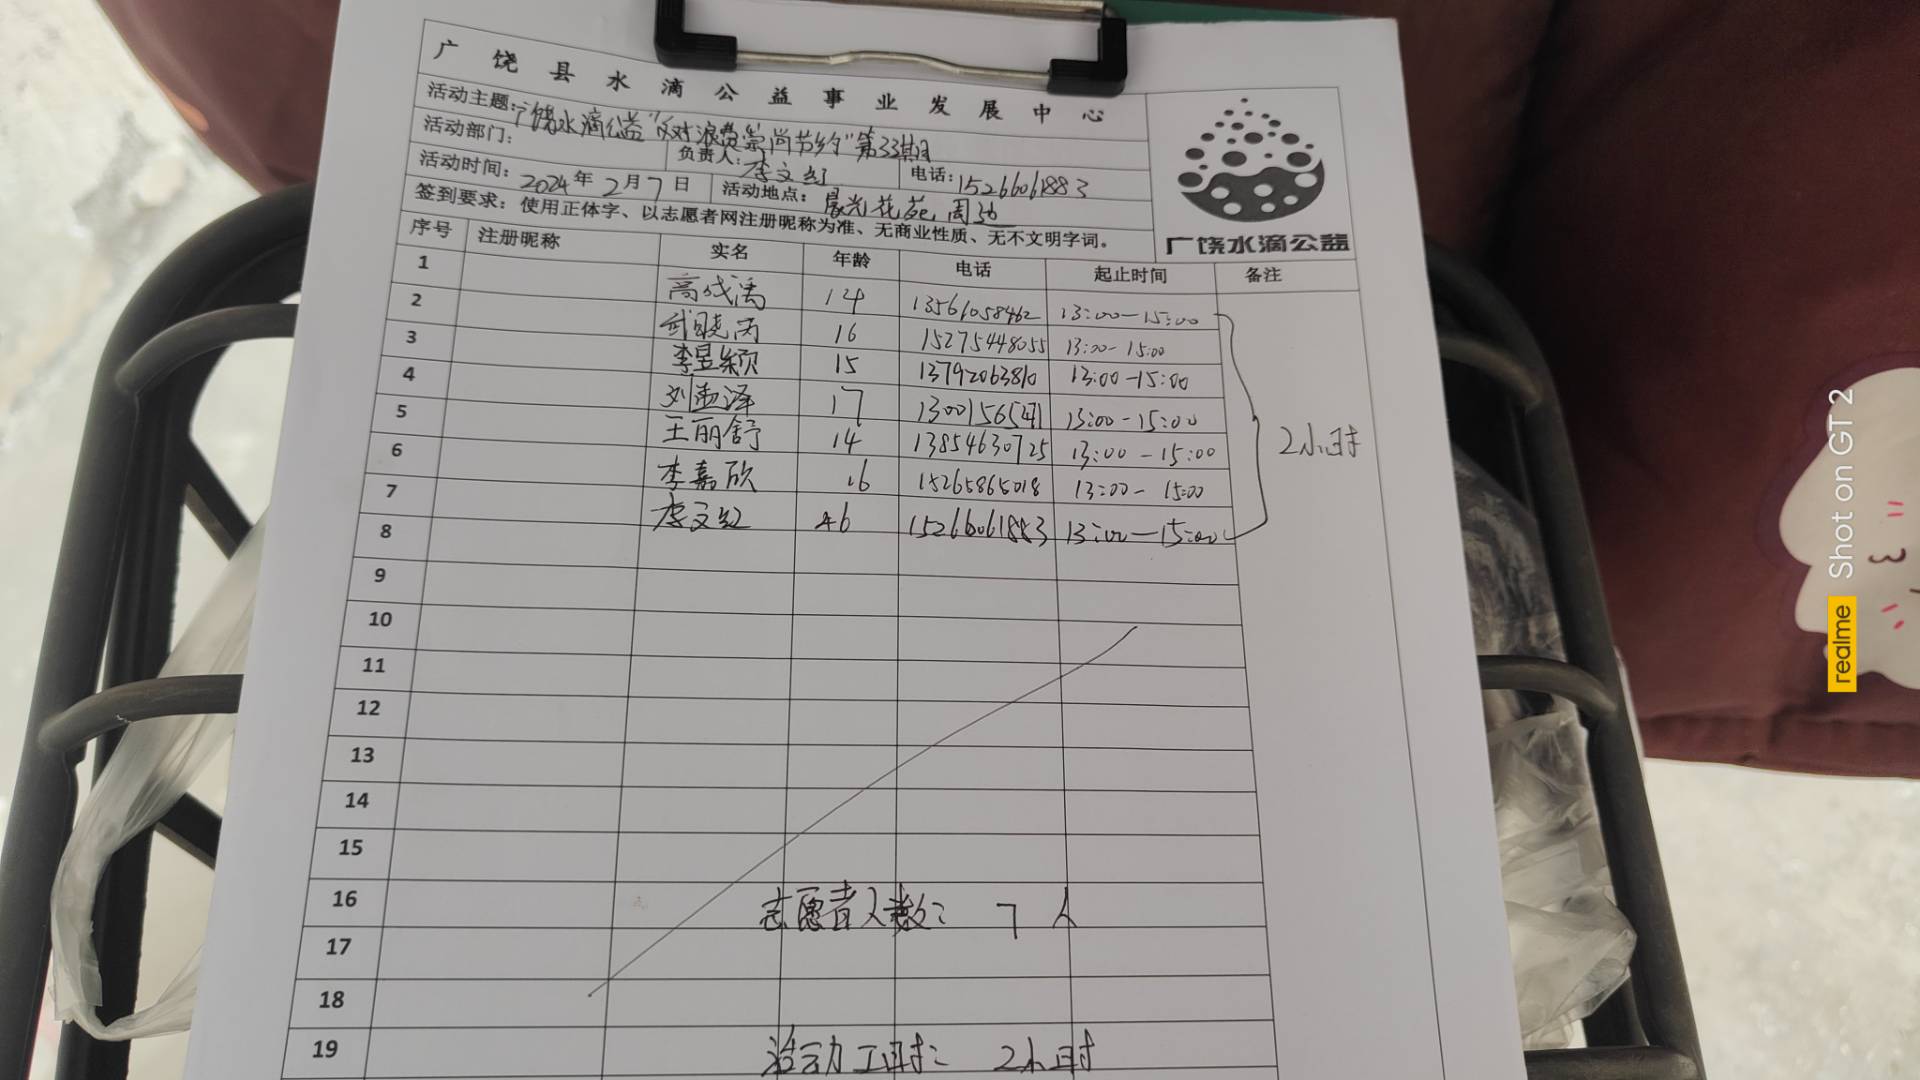 广饶县水滴公益事业发展中心
活动主题:广饶水滴公益"反对浪费崇尚节约"第33期
活动部门: 负责人:李文红 电话:15266061883
活动时间:2024年2月7日 活动地点:晨光花苑周边
签到要求:使用正体字、以志愿者网注册昵称为准、无商业性质、无不文明字词。
广饶水滴公益
序号 注册昵称 实名 年龄 电话 起止时间 备注
1 高成禹 14 13561058462 13:00-15:00
2 武晓芮 16 15275448055 13:00-15:00
3 李昱颖 15 13792063810 13:00-15:00
4 刘孟泽 17 13:00-15:00
5 王丽舒 14 13854630725 13:00-15:00
6 李嘉欣 16 15265865018 13:00-15:00
7 李文红 46 15266061883 13:00-15:00
2小时
8
9
10
11
12
13
14
15
16 志愿者人数: 7人
17
18
19 活动工时: 2小时
realme Shot on GT 2